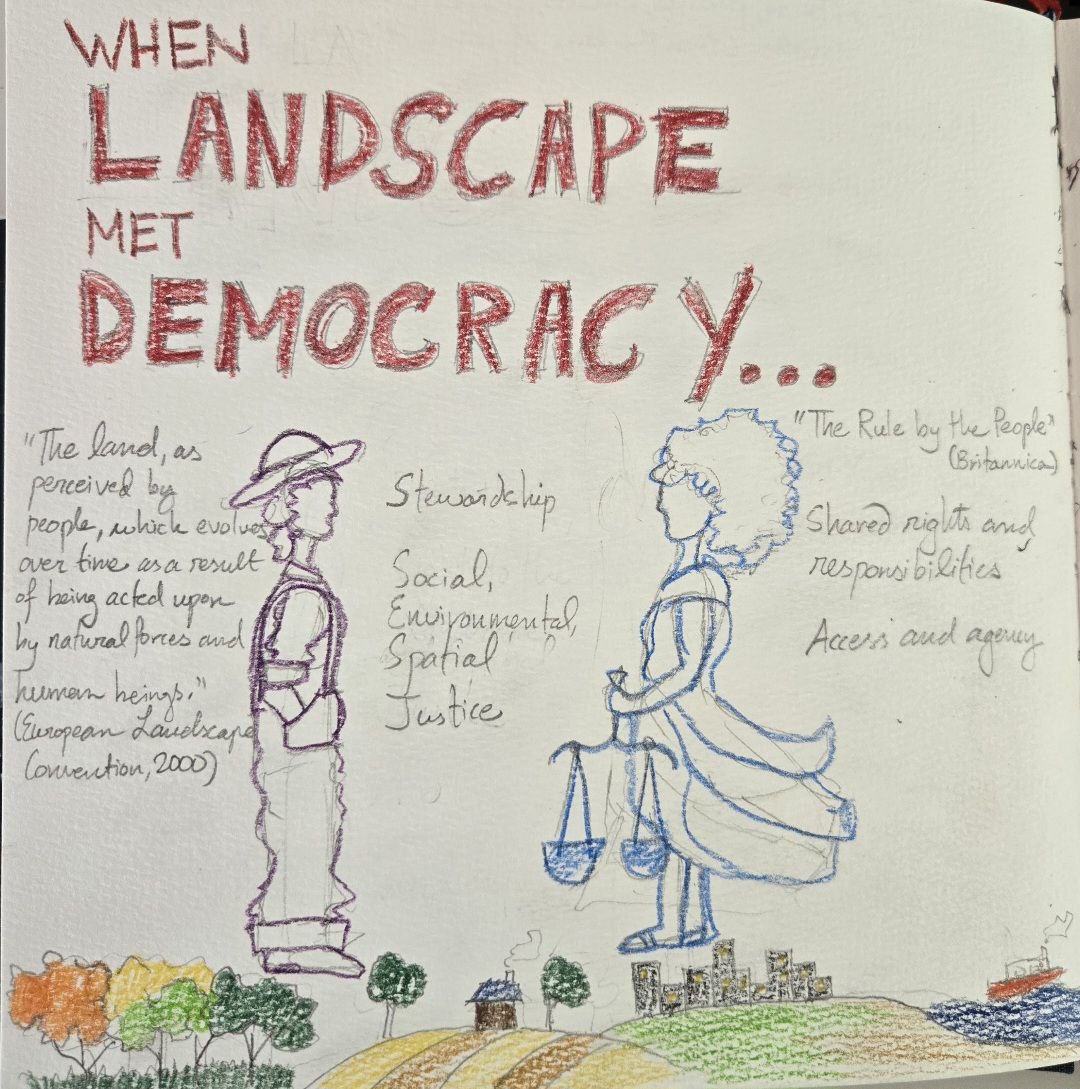 WHEN
LANDSCAPE
MET
DEMOCRACY...
"The land, as
perceived by
people, which evolves
over time as a result
of being acted upon
by natural forces and
human beings."
(European Landscape
Convention, 2000)
Stewardship
Social,
Environmental,
Spatial
Justice
"The Rule by the People"
(Britannica)
Shared rights and
responsibilities
Access and agency